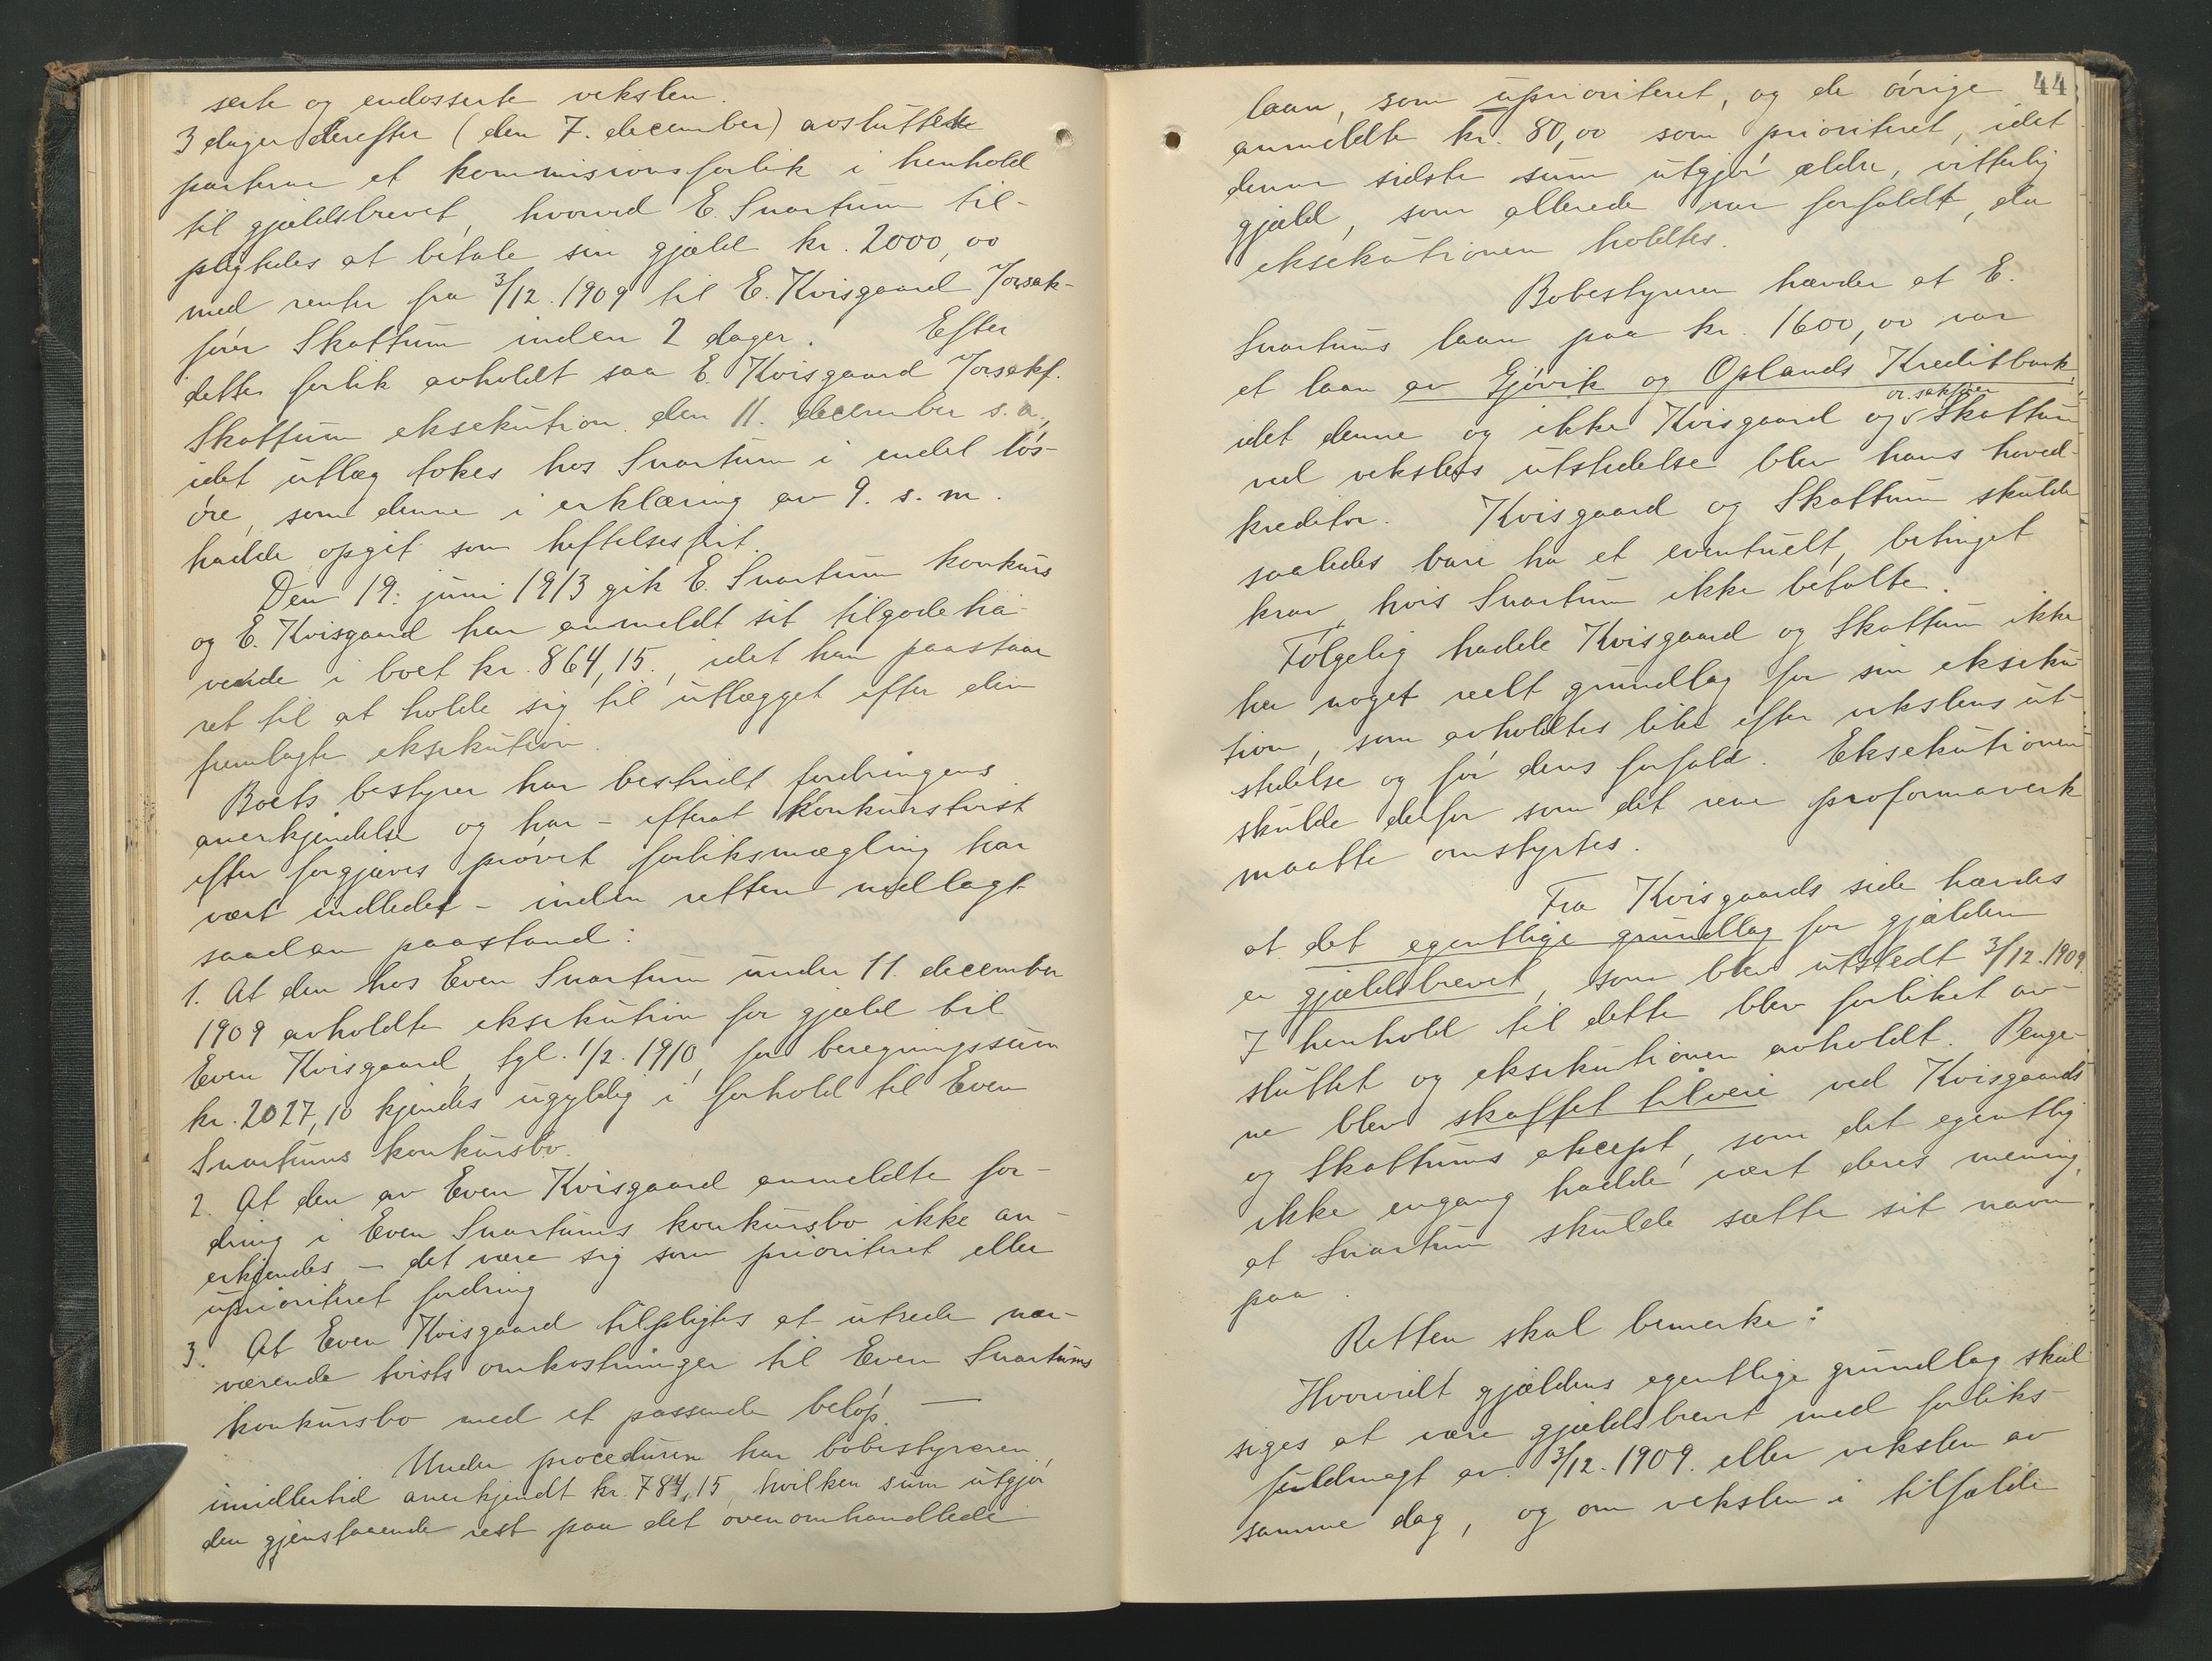 serte og endosserte vekslen.
3 dager derefter (den 7. december) avsluttede
parterne et kommisionsforlik i henhold
til gjældsbrevet, hvorved E. Svartum til-
pligtedes at betale sin gjæld kr. 2000,00
med renter fra 3/12. 1909 til E. Kvisgaard v/orsak-
fører Skattum inden 2 dager. Efter
dette forlik avholdt saa E. Kvisgaard v/o.sakf.
Skattum eksekution den 11. december s.a.,
idet utlæg tokes hos Svartum i endel løs-
øre, som denne i erklæring av 9. s. m.
hadde opgit som heftelsesfrit.
Den 19. juni 1913 gik E. Svartum konkurs
og E. Kvisgaard har anmeldt sit tilgodeha-
vende i boet kr. 864,15, idet han paastaar
ret til at holde sig til utlægget efter den
fremlagte eksekution.
Boets bestyrer har bestridt fordringens
anerkjendelse og har - efterat konkurstvist
efter forgjæves prøvet forliksmægling har
vært indledet - inden retten nedlagt
saadan paastand:
1. At den hos Even Svartum under 11. december
1909 avholdte eksekution for gjæld til
Even Kvisgaard, tgl. 1/2. 1910, for beregningssum
kr. 2027,10 kjendes ugyldig i forhold til Even
Svartums konkursbo.
2. At den av Even Kvisgaard anmeldte for-
dring i Even Svartums konkursbo ikke an-
erkjendes - det være sig som prioritert eller
uprioritert fordring
3. At Even Kvisgaard tilpligtes at utrede nær-
værende tvists omkostninger til Even Svartums
konkursbo med et passende beløp. —
Under proceduren har bobestyreren
imidlertid anerkjendt kr. 784,15, hvilken sum utgjør
den gjenstaaende rest paa det ovenomhandlede
44
laan, som uprioritert, og de øvrige
anmeldte kr. 80,00 som prioritert, idet
denne sidste sum utgjør ældre, vitterlig
gjæld, som allerede var forfaldt, da
eksekutionen holdtes.
Bobestyreren hævder at E.
Svartums laan paa kr. 1600,00 var
et laan av Gjøvik og Oplands Kreditbank,
or.sakfører
idet denne og ikke Kvisgaard og Skattum
ved vekslens utstedelse blev hans hoved-
kreditor. Kvisgaard og Skattum skulde
saaledes bare ha et eventuelt, betinget
krav, hvis Svartum ikke betalte.
Følgelig hadde Kvisgaard og Skattum ikke
her noget reelt grundlag for sin ekseku-
tion, som avholdtes like efter vekslens ut-
stedelse og før dens forfald. Eksekutionen
skulde derfor som det rene proformaverk
maatte omstyrtes.
Fra Kvisgaards side hævdes
at det egentlige grundlag for gjælden
er gjældsbrevet, som blev utstedt 3/12. 1909.
I henhold til dette blev forliket av-
sluttet og eksekutionen avholdt. Penge-
ne blev skaffet tilveie ved Kvisgaards
og Skattums aksept, som det egentlig
ikke engang hadde vært deres mening,
at Svartum skulde sætte sit navn
paa.
Retten skal bemerke:
Hvorvidt gjældens egentlige grundlag skal
siges at være gjældsbrevet med forliks-
fuldmagt av 3/12. 1909. eller vekslen av
samme dag, og om vekslen i tilfælde